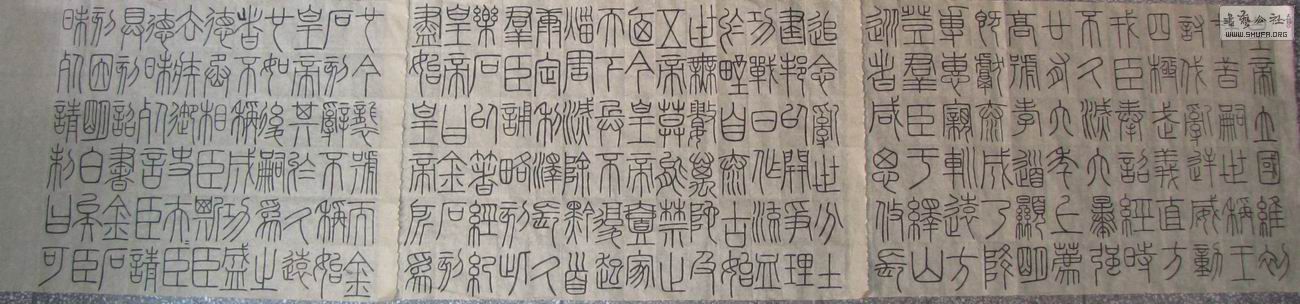 皇帝立國維初
在昔嗣世稱王
討伐亂逆威動
四極武義直方
戎臣奉詔經時
不久滅六暴強
廿有六年上薦
高號孝道顯明
既獻泰成乃降
專惠親巡遠方
登羣臣于繹山
從者咸思攸長
追念亂世分土
建邦以開爭理
功戰日作流血
於野自泰古始
世無萬數陀及
五帝莫能禁止
廼今皇帝壹家
天下兵不復起
災害滅除黔首
康定利澤長久
羣臣誦略刻此
樂石以著經紀
皇帝曰金石刻
盡始皇帝所為
也今襲號而金
石刻辭不稱始
皇帝其於久遠
也如後嗣為之
者不稱成功盛
德丞相臣斯臣
去疾御史夫臣
德昧死言臣請
具刻詔書金石
刻因明白矣臣
昧死請制曰可
WWW.SHUFA.ORG